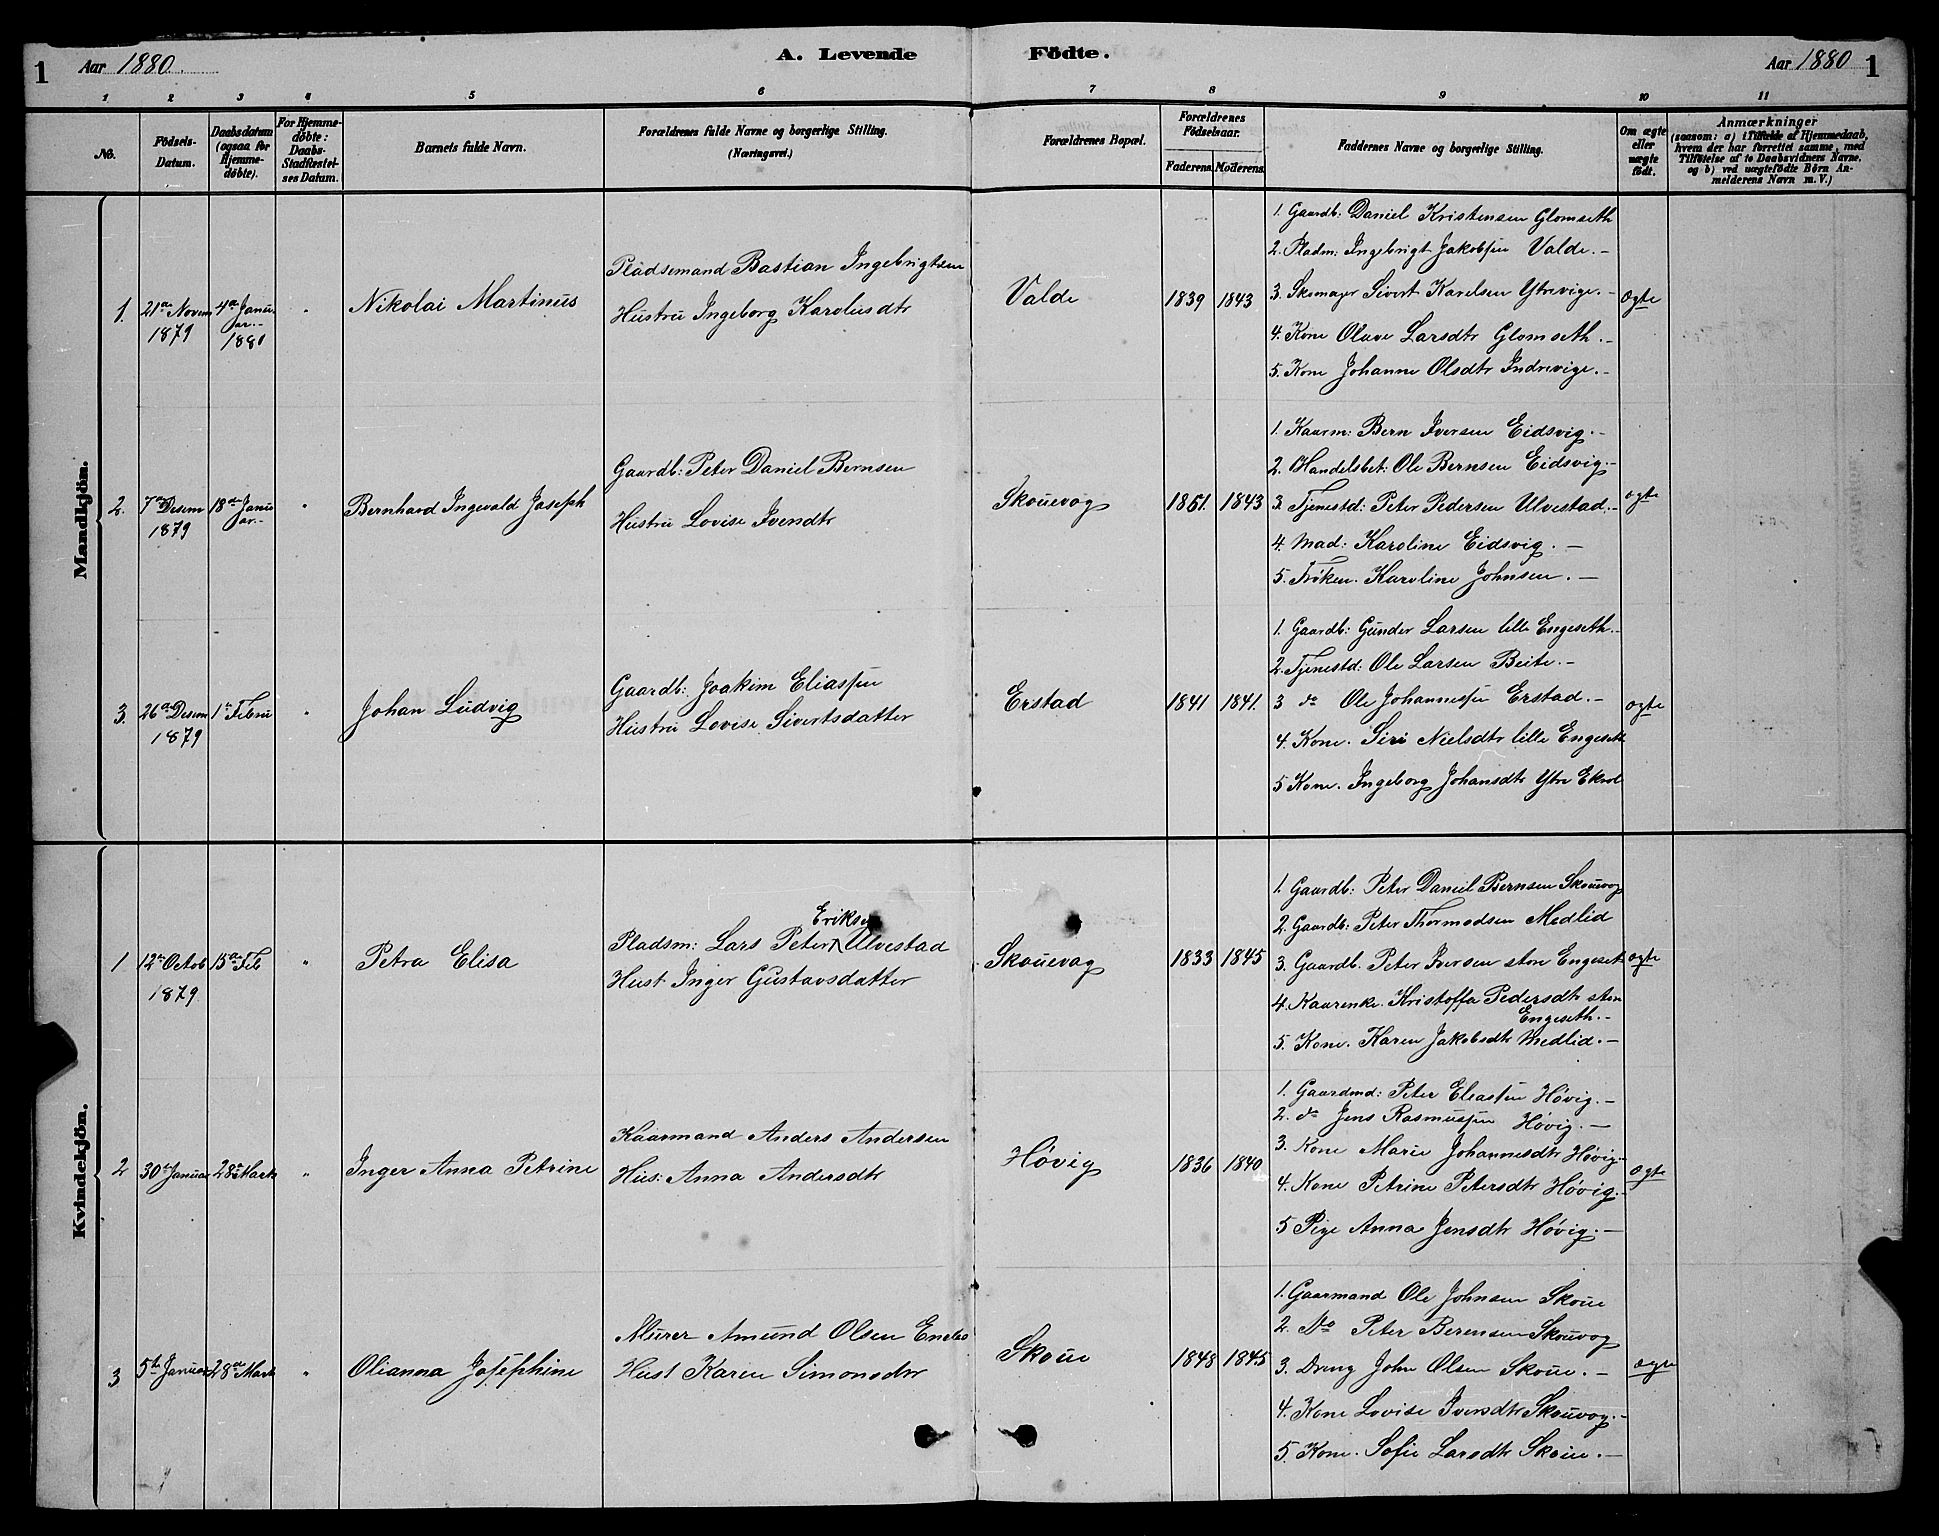 1 Aar 1880. A. Levende Födte. Aar 1880 1
1 2 3 4 5 6 7 8 9 10 11
No. Födsels-Datum. Daabsdatum (ogsaa for Hjemme-döbte). For Hjemme-döbte: Daabs-Stadfæstel-ses Datum. Barnets fulde Navn. Forældrenes fulde Navne og borgerlige Stilling. (Næringsvei.) Forældrenes Bopæl. Forældrenes Födselsaar. Faderens. Moderens. Faddernes Navne og borgerlige Stilling. Om ægte eller uægte födt. Anmærkninger (saasom: a) i Tilfælde af Hjemmedaab, hvem der har forrettet samme, med Tilföielse af to Daabsvidners Navne, og b) ved uægtefödte Börn An-melderens Navn m. V.)
Mandkjön.
1. 21de Novem 1879 4de Januar 1880 " Nikolai Martinus
Pladsemand Bastian Ingebrigtsen
Hustru Ingeborg Karolusdtr
Valde 1839 1843
1. Gaardb: Daniel Kristensen Glomseth
2. Pladm: Ingebrigt Jakobsen Valde.-
3. Skomager Sivert Karelsen Ytrevige.-
4. Kone Olave Larsdtr Glomseth.-
5. Kone Johanne Olsdtr Indrevige.-
Ogte
2. 7de Desem 1879 18de Januar.- " Bernhard Ingevald Joseph
Gaardb: Peter Daniel Bernsen
Hustru Lovise Ivendtr
Skouevog 1851. 1843
1. Kaarm: Bern Iversen Eidsvig.-
2. Handelsbet: Ole Bernsen Eidsvig.-
3. Tjenestd: Peter Pedersen Ulvestad.-
4. Mad: Karoline Eidsvig.-
5. Frøken. Karoline Johnsen.-
ogte
3. 26de Desem 1879 1ste Febru " Johan Ludvig
Gaardb: Joakim Eliassen
Hustru Lovise Sivertsdatter
Erstad 1841 1841.
1. Gaardb: Gunder Larsen lille Engeseth.-
2. Tjenestd: Ole Larsen Beite.-
3 do Ole Johannessen Erstad.-
4. Kone. Siri Nielsdtr lille Engeseth
5 Kone. Ingeborg Johansdtr Ytre Ekrol
ogte
Kvindekjön.
1 12te Octob 1879. 15de Feb " Petra Elisa
Eriksen
Pladsm: Lars Peter Ulvestad
Hust Inger Gustavsdatter
Skouevog 1833 1845
1. Gaardb: Peter Daniel Bernsen Skouvog
2. Gaardb: Peter Thormodsen Medlid
3. Gaardb. Peter Iversen store Engeset
4. Kaarenke. Kristoffa Pedersdtr store
Engeseth.-
5. Kone. Karen Jakobsdtr Medlid.-
ogte
2 30te Januar 28de Marts " Inger Anna Petrine
Kaarmand Anders Andersen
Hus: Anna Andersdtr
Høvig 1836 1840
1. Gaardmd: Peter Eliassen Høvig.-
2. do Jens Rasmussen Høvig.-
3. Kone Marie Johannesdtr Høvig.-
4. Kone Petrine Petersdtr Høvig.-
5 Pige Anna Jensdtr Høvig.-
ogte
3 5te Januar 28de Marts " Olianna Josephine
Murer Amund Olsen Enebo
Hust Karen Simonsdtr
Skoue 1848 1845
1. Gaarmand Ole Johnsen Skoue
2. do Peter Berensen Skouvog
3. Dreng John Olsen Skoue.-
4. Kone Lovise Iversdtr Skouvog.-
5. Kone. Sofie Larsdtr Skoue.-
ogte